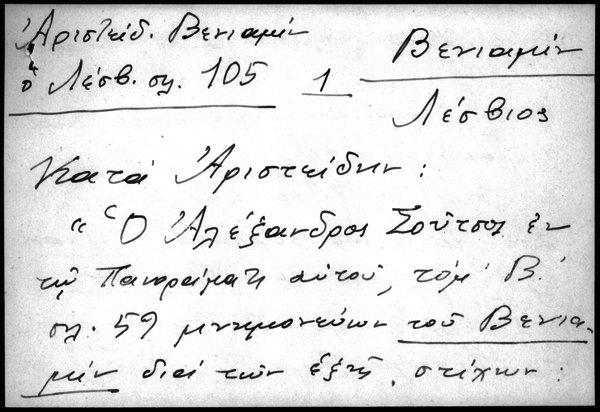 Ἀριστείδ. Βενιαμὶν
ὁ Λέσβ. σλ. 105
1
Βενιαμὶν
Λέσβιος
Κατὰ Ἀριστείδην:
« Ὁ Ἀλέξανδρος Σοῦτσος ἐν
τῷ Πανοράματι αὐτοῦ, τόμ. Β'.
σλ. 59 μνημονεύων τοῦ Βενια-
μὶν διὰ τῶν ἑξῆς στίχων: